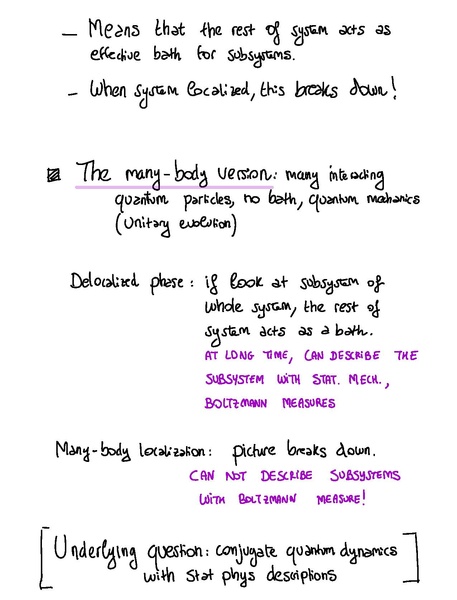 – Means that the rest of system acts as
effective bath for subsystems.
– When system localized, this breaks down!
The many-body version: many interacting
quantum particles, no bath, quantum mechanics
(unitary evolution)
Delocalized phase: if look at subsystem of
whole system, the rest of
system acts as a bath.
AT LONG TIME, CAN DESCRIBE THE
SUBSYSTEM WITH STAT. MECH.,
BOLTZMANN MEASURES
Many-body localization: picture breaks down.
CAN NOT DESCRIBE SUBSYSTEMS
WITH BOLTZMANN MEASURE!
[Underlying question: conjugate quantum dynamics
with stat phys desciptions]